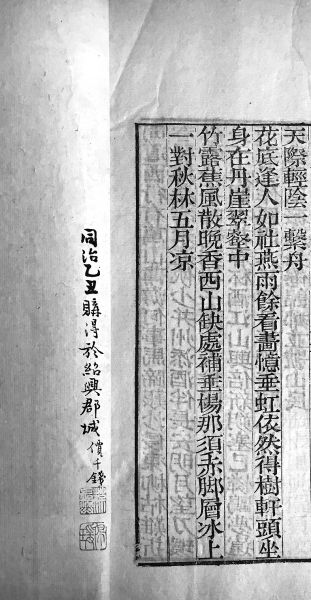 天際輕陰一繫舟
花底逢人如社燕雨餘看畫憶垂虹依然得樹軒頭坐
身在丹崖翠壑中
竹露蕉風散晚香西山缺處補垂楊那須赤脚層冰上
一對秋林五月凉
同治乙丑購得於紹興郡城價千錢